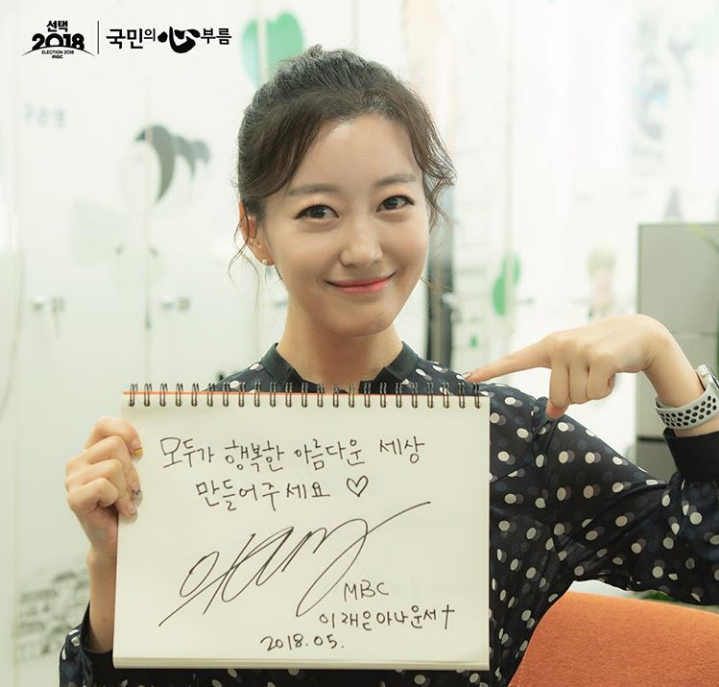 선택
2018
ELECTION 2018
MBC
국민의心부름
모두가 행복한 아름다운 세상
만들어주세요 ♡
MBC
이재은아나운서
2018.05.